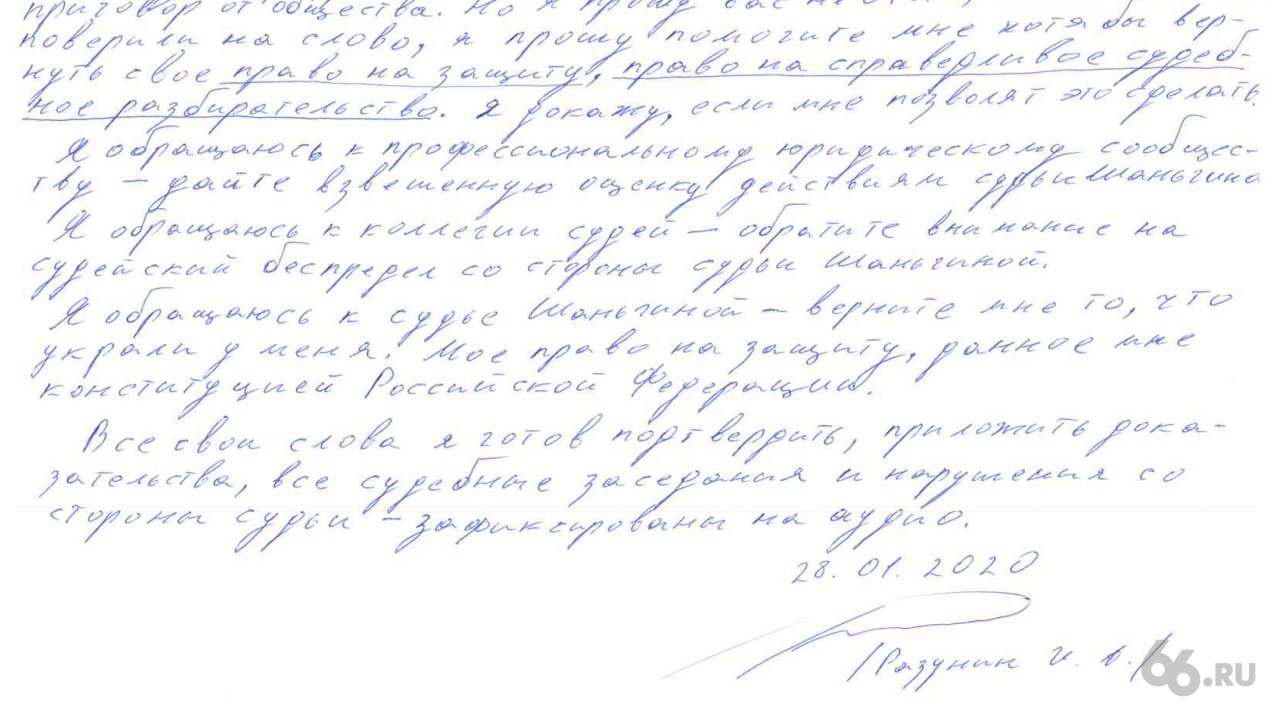 приговор от общества. Но я прошу вас не
поверили на слово, я прошу помогите мне хотя бы вер-
нуть свое право на защиту, право на справедливое судеб-
ное разбирательство. Я докажу, если мне позволят это сделать.
Я обращаюсь к профессиональному юридическому сообщес-
тву – дайте взвешенную оценку действиям судьи Шаньгина
Я обращаюсь к коллегии судей – обратите внимание на
судейский беспредел со стороны судьи Шаньгиной.
Я обращаюсь к судье Шаньгиной – верните мне то, что
украли у меня. Мое право на защиту, данное мне
конституцией Российской Федерации.
Все свои слова я готов подтвердить, приложить дока-
зательства, все судебные заседания и нарушения со
стороны судьи – зафиксированы на аудио.
28.01.2020
/Разунин И. В./
66.RU